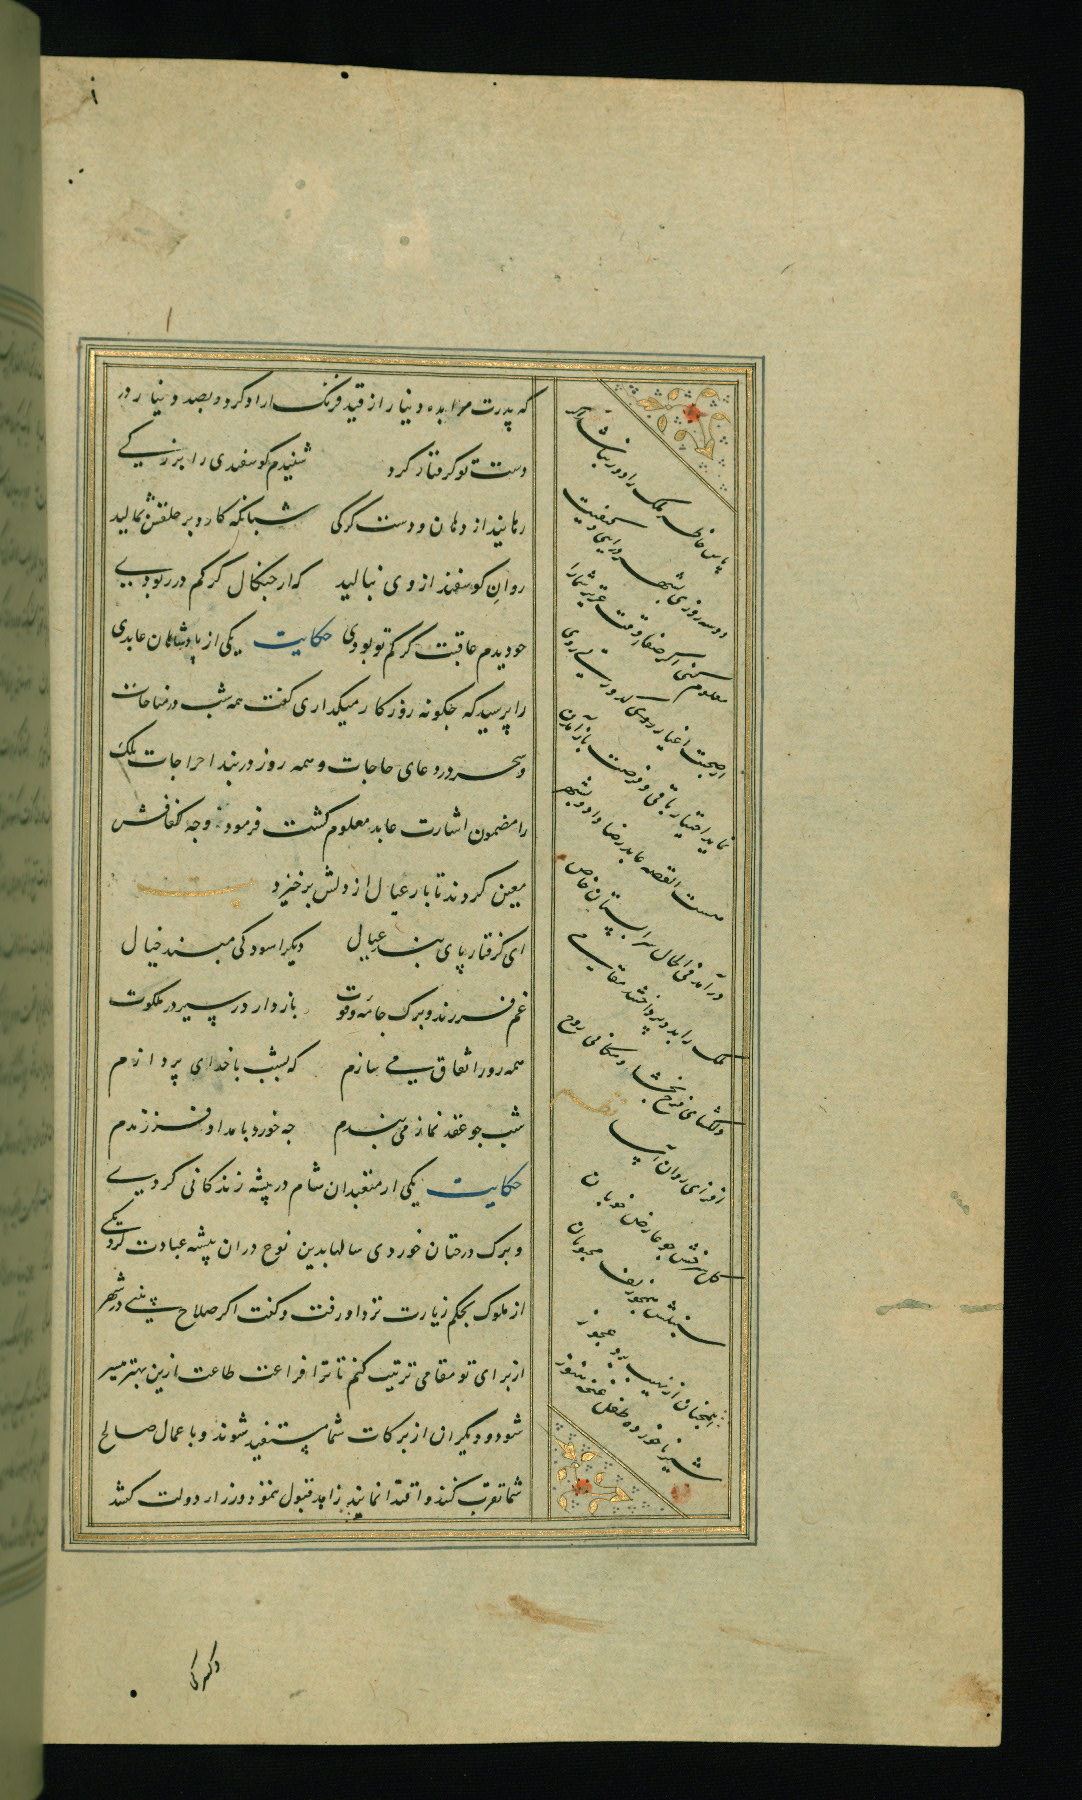 که پدرت مرا بده دینار از قید فرنک آزاد کرد و بصد دینار در
دست تو کرفتار کرد شنیدم کوسفندی را بزرکی
رهانید از دهان و دست کرکی شبانکه کارد بر حلقش بمالید
روان کوسفند از وی نبالید که از چنکال کرکم در ربودی
چو دیدم عاقبت کرکم تو بودی حکایت یکی از پادشاهان عابدی
را پرسید که چکونه روزکار میکذاری کفت همه شب در مناجات
و سحر در دعای حاجات و همه روز در بند اخراجات ملک
را مضمون اشارت عابد معلوم کشت فرمود وجه کفافش
معین کردند تا بار عیال از دلش برخیزد بیت
ای کرفتار پای بند عیال دیکر آسودکی مبند خیال
غم فرزند و برک جامه و قوت باز دارد ز سیر در ملکوت
همه روز اتفاق می سازم که بشب با خدای پردازم
شب چو عقد نماز می بندم چه خورد بامداد فرزندم
حکایت یکی از متعبدان شام در بیشه زندکانی کردی
و برک درختان خوردی سالها بدین نوع در آن بیشه عبادت کرد یکی
از ملوک بحکم زیارت نزد او رفت و کفت اکر صلاح بینی در شهر
از برای تو مقامی ترتیب کنم تا ترا فراغت طاعت ازین بهتر میسر
شود و دیکران از برکات شما مستفید شوند و باعمال صالح
شما تقرب کنند و اقتدا نمایند زاهد قبول ننمود وزرا دولت کفتند
پاس خاطر ملک را دو ربنا شد اکر
دو سه روزی بشهر در آیی و کیفیت
معلوم کنی اکر صفای وقت عزیز شما را
از صحبت اغیار کدورتی روی
نماید اختیار باقی و فرصت باز آمدن
هست القصه عابد رضا داد و بشهر
در آمد فی الحال سرابستان خاص
ملک را بدو پرداختند مقامی
دلکشای فرح بخشا و مکانی روح
افزای روان آسا نظم
کل سرخش چو عارض خوبان
سنبلش همچو زلف محبوبان
همچنان از نهیب برد عجوز
شیر ناخورده طفل غنچه هنوز